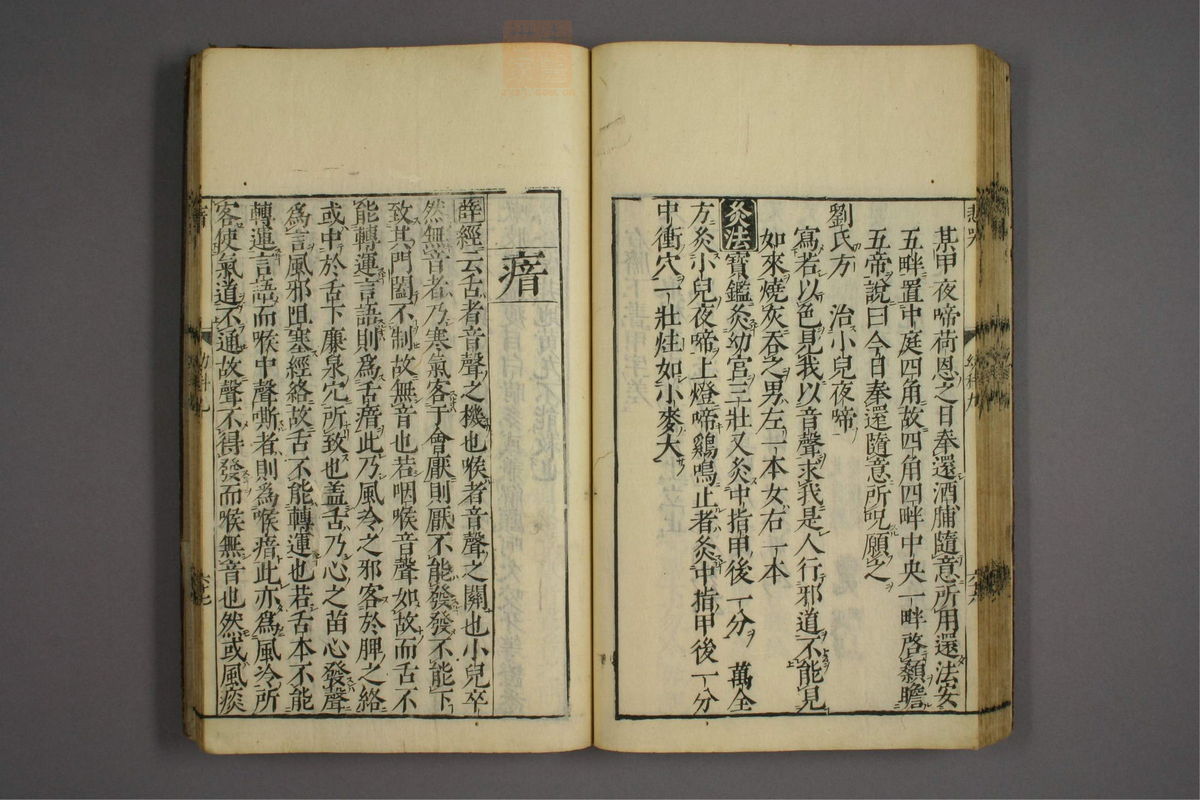 某甲夜啼荷恩之日奉還酒脯隨意所用還法安
五畔置中庭四角故四角四畔中央一畔啓顙瞻
五帝說曰今日奉還隨意所呪願之
劉氏方 治小兒夜啼
寫若以色見我以音聲求我是人行邪道不能見
如來燒灰吞之男左一本女右一本
灸法寶鑑灸幼宮三壯又灸中指甲後一分 萬全
方灸小兒夜啼上燈啼鷄鳴止者灸中指甲後一分
中衝穴一壯炷如小麥大
瘖
薛經云舌者音聲之機也喉者音聲之關也小兒卒
然無音者乃寒氣客于會厭則厭不能發發不能下
致其門闔不制故無音也若咽喉音聲如故而舌不
能轉運言語則爲舌瘖此乃風冷之邪客於脾之絡
或中於舌下廉泉穴所致也盖舌乃心之苗心發聲
爲言風邪阻塞經絡故舌不能轉運也若舌本不能
轉運言語而喉中聲嘶者則為喉瘖此亦爲風冷所
客使氣道不通故聲不得發而喉無音也然或風痰